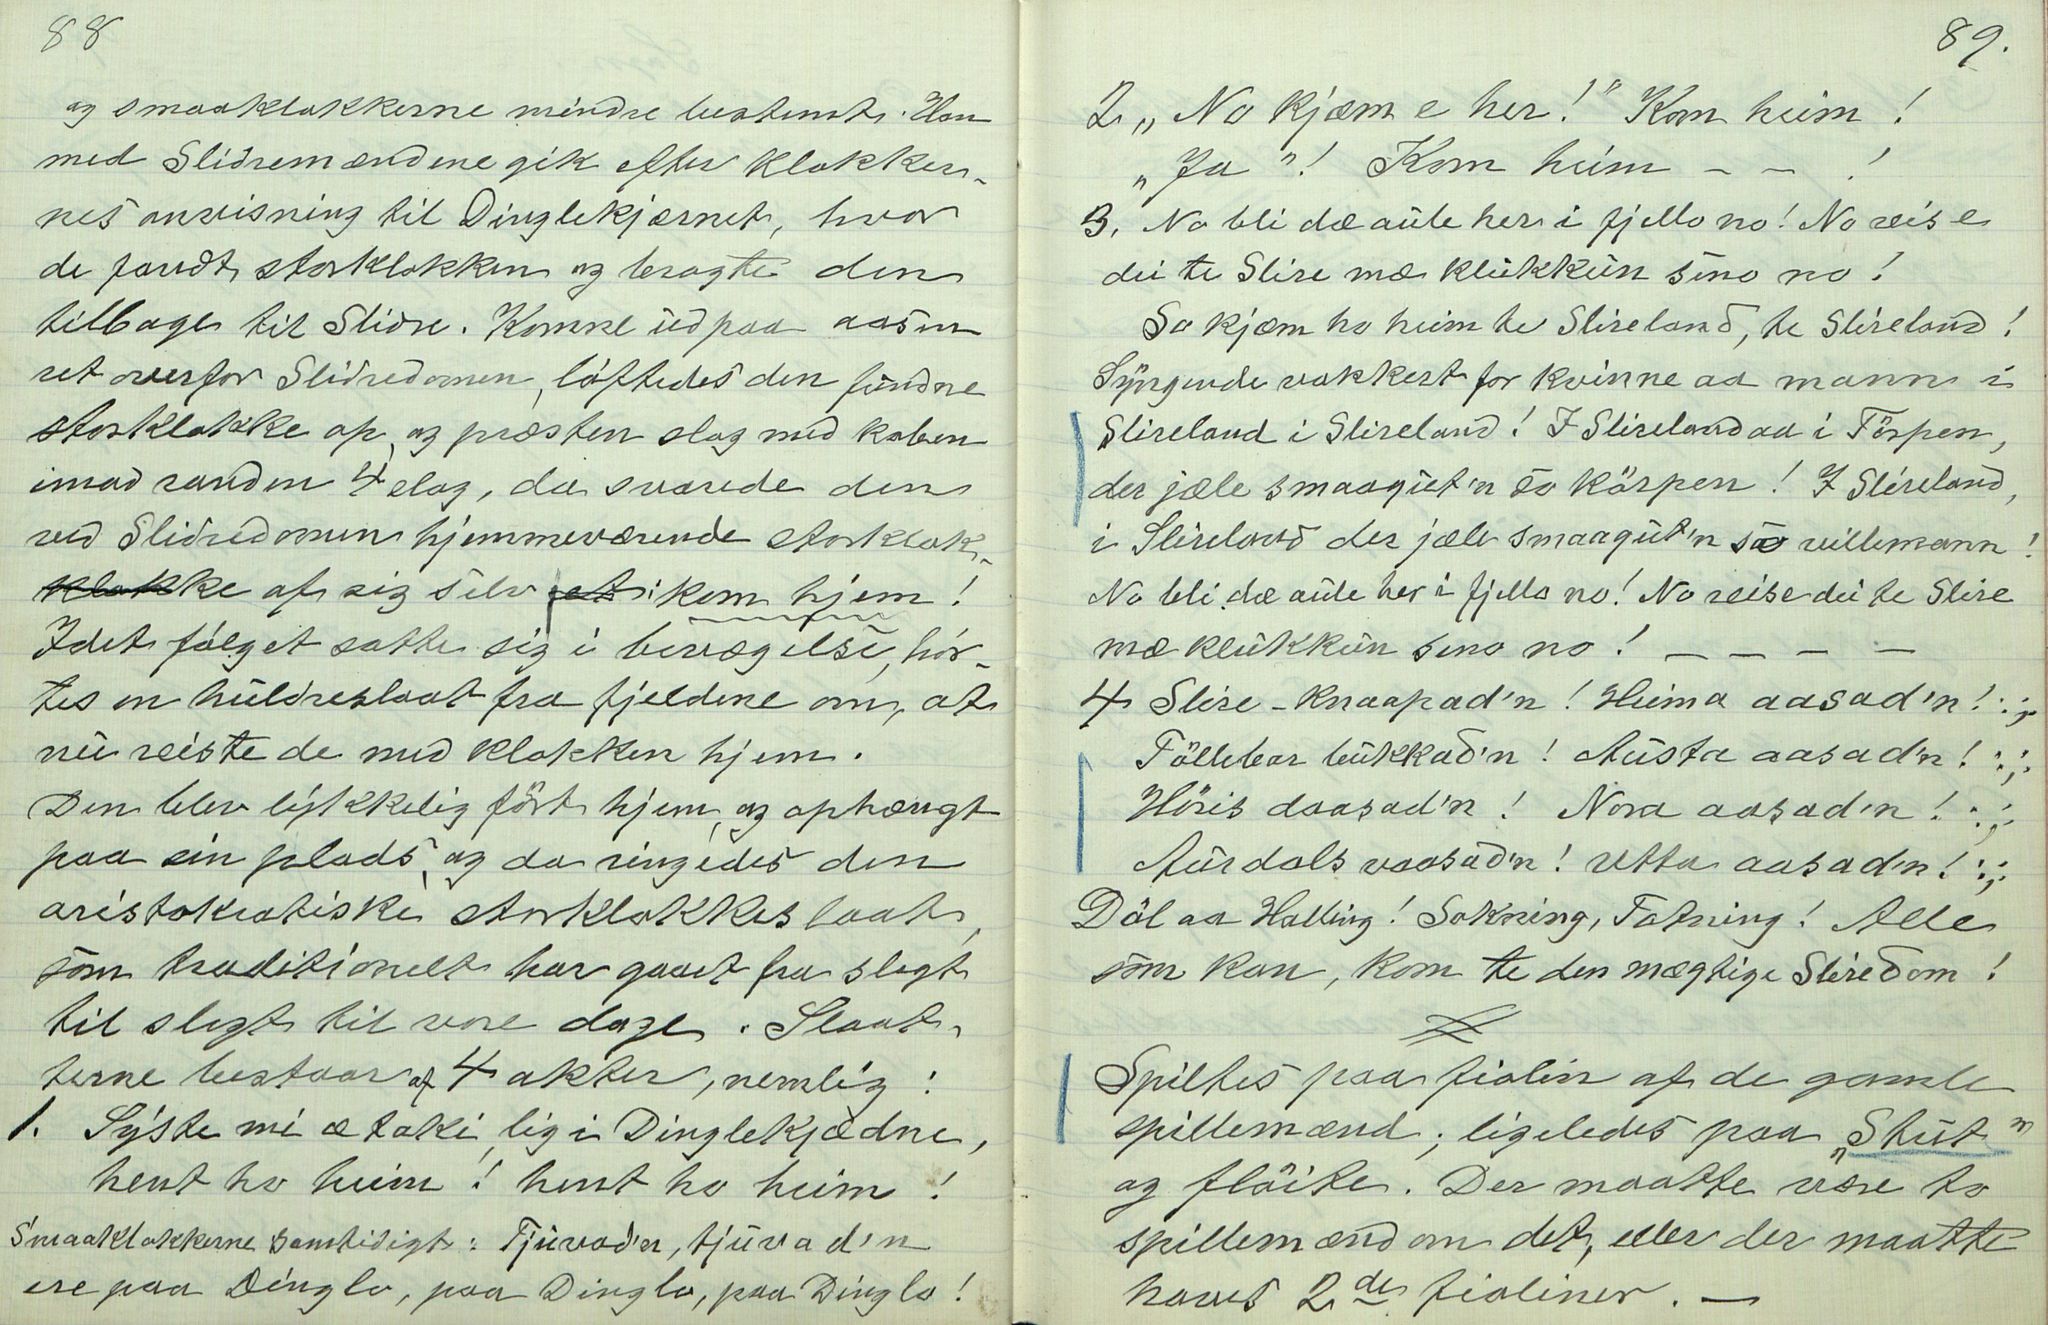 88
og smaaklokkerne mindre bestemt. Han
med Slidremændene gik efter klokker-
nes anvisning til Dinglekjærnet, hvor
de fandt storklokken og bragte den
tilbage til Slidre. Komne ud paa aasen
ret overfor Slidredomen, løftedes den fundne
storklokke op, og præsten slog med kolven
imod randen 4 slag, da svarede den
ved Slidredomen hjemmeværende storklok-
klokke af sig selv et: kom hjem!
Idet følget satte sig i bevægelse, hör-
tes en huldreslaat fra fjeldene om, at
nu reiste de med klokken hjem.
Den blev lykkelig ført hjem, og ophængt
paa sin plads, og da ringedes den
aristokratiske storklokkeslaat,
som traditionelt har gaaet fra slegt
til slegt til vore dage. Slaat,
terne bestaar af 4 akter, nemlig:
1. Syste mi æ taki, lig i Dinglekjædne,
hent ho heim! hent ho heim!
Smaaklokkerne samtidigt: Tjuvad'n, tjuvad'n
ere paa Dinglo, paa Dinglo, paa Dinglo!
89.
2. „No kjæm e her!" Kom heim!
„Ja"! Kom heim – – !
3. No bli dæ aude her i fjello no! No reis e
dei te Slire mæ klukkun sino no!
So kjæm ho heim te Slireland, te Slireland!
Syngende vakkert for kvinne aa mann i
Slireland i Slireland! I Slireland aa i Törpen,
der jæle smaagut'n so körpen! I Slireland,
i Slireland der jæle smaagut'n so villemann!
No bli dæ aude her i fjello no! No reise dei te Slire
mæ klukkun sino no! – – – –
4 Slire-Knaapad'n! Heima aasad'n! :,:
Töllebar bukkad'n! Austa aasad'n! :,:
Höris daasad'n! Nora aasad'n! :,:
Aurdals vaasad'n! Utta aasad'n! :,:
Döl aa Halling! Sokning, Totning! Alle
som kan, kom te den mægtige Sliredom!
Spiltes paa fiolin af de gamle
spillemænd; ligeledes paa „Stut"
og flöite. Der maatte være to
spillemænd om det, eller der maatte
haves 2de fioliner. —